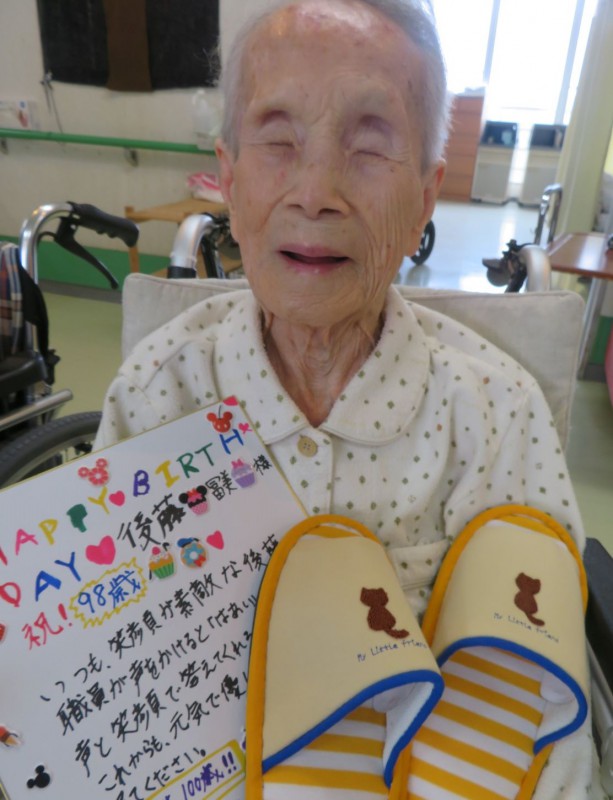 HAPPY♥BIRTH
DAY♥後藤冨美様
祝！98歳
いつも、笑顔が素敵な後藤
職員が声をかけると「はぁい」
声と笑顔で答えてくれる
これからも、元気で優し
てください。
100歳!!
My Little friend
My Little friend